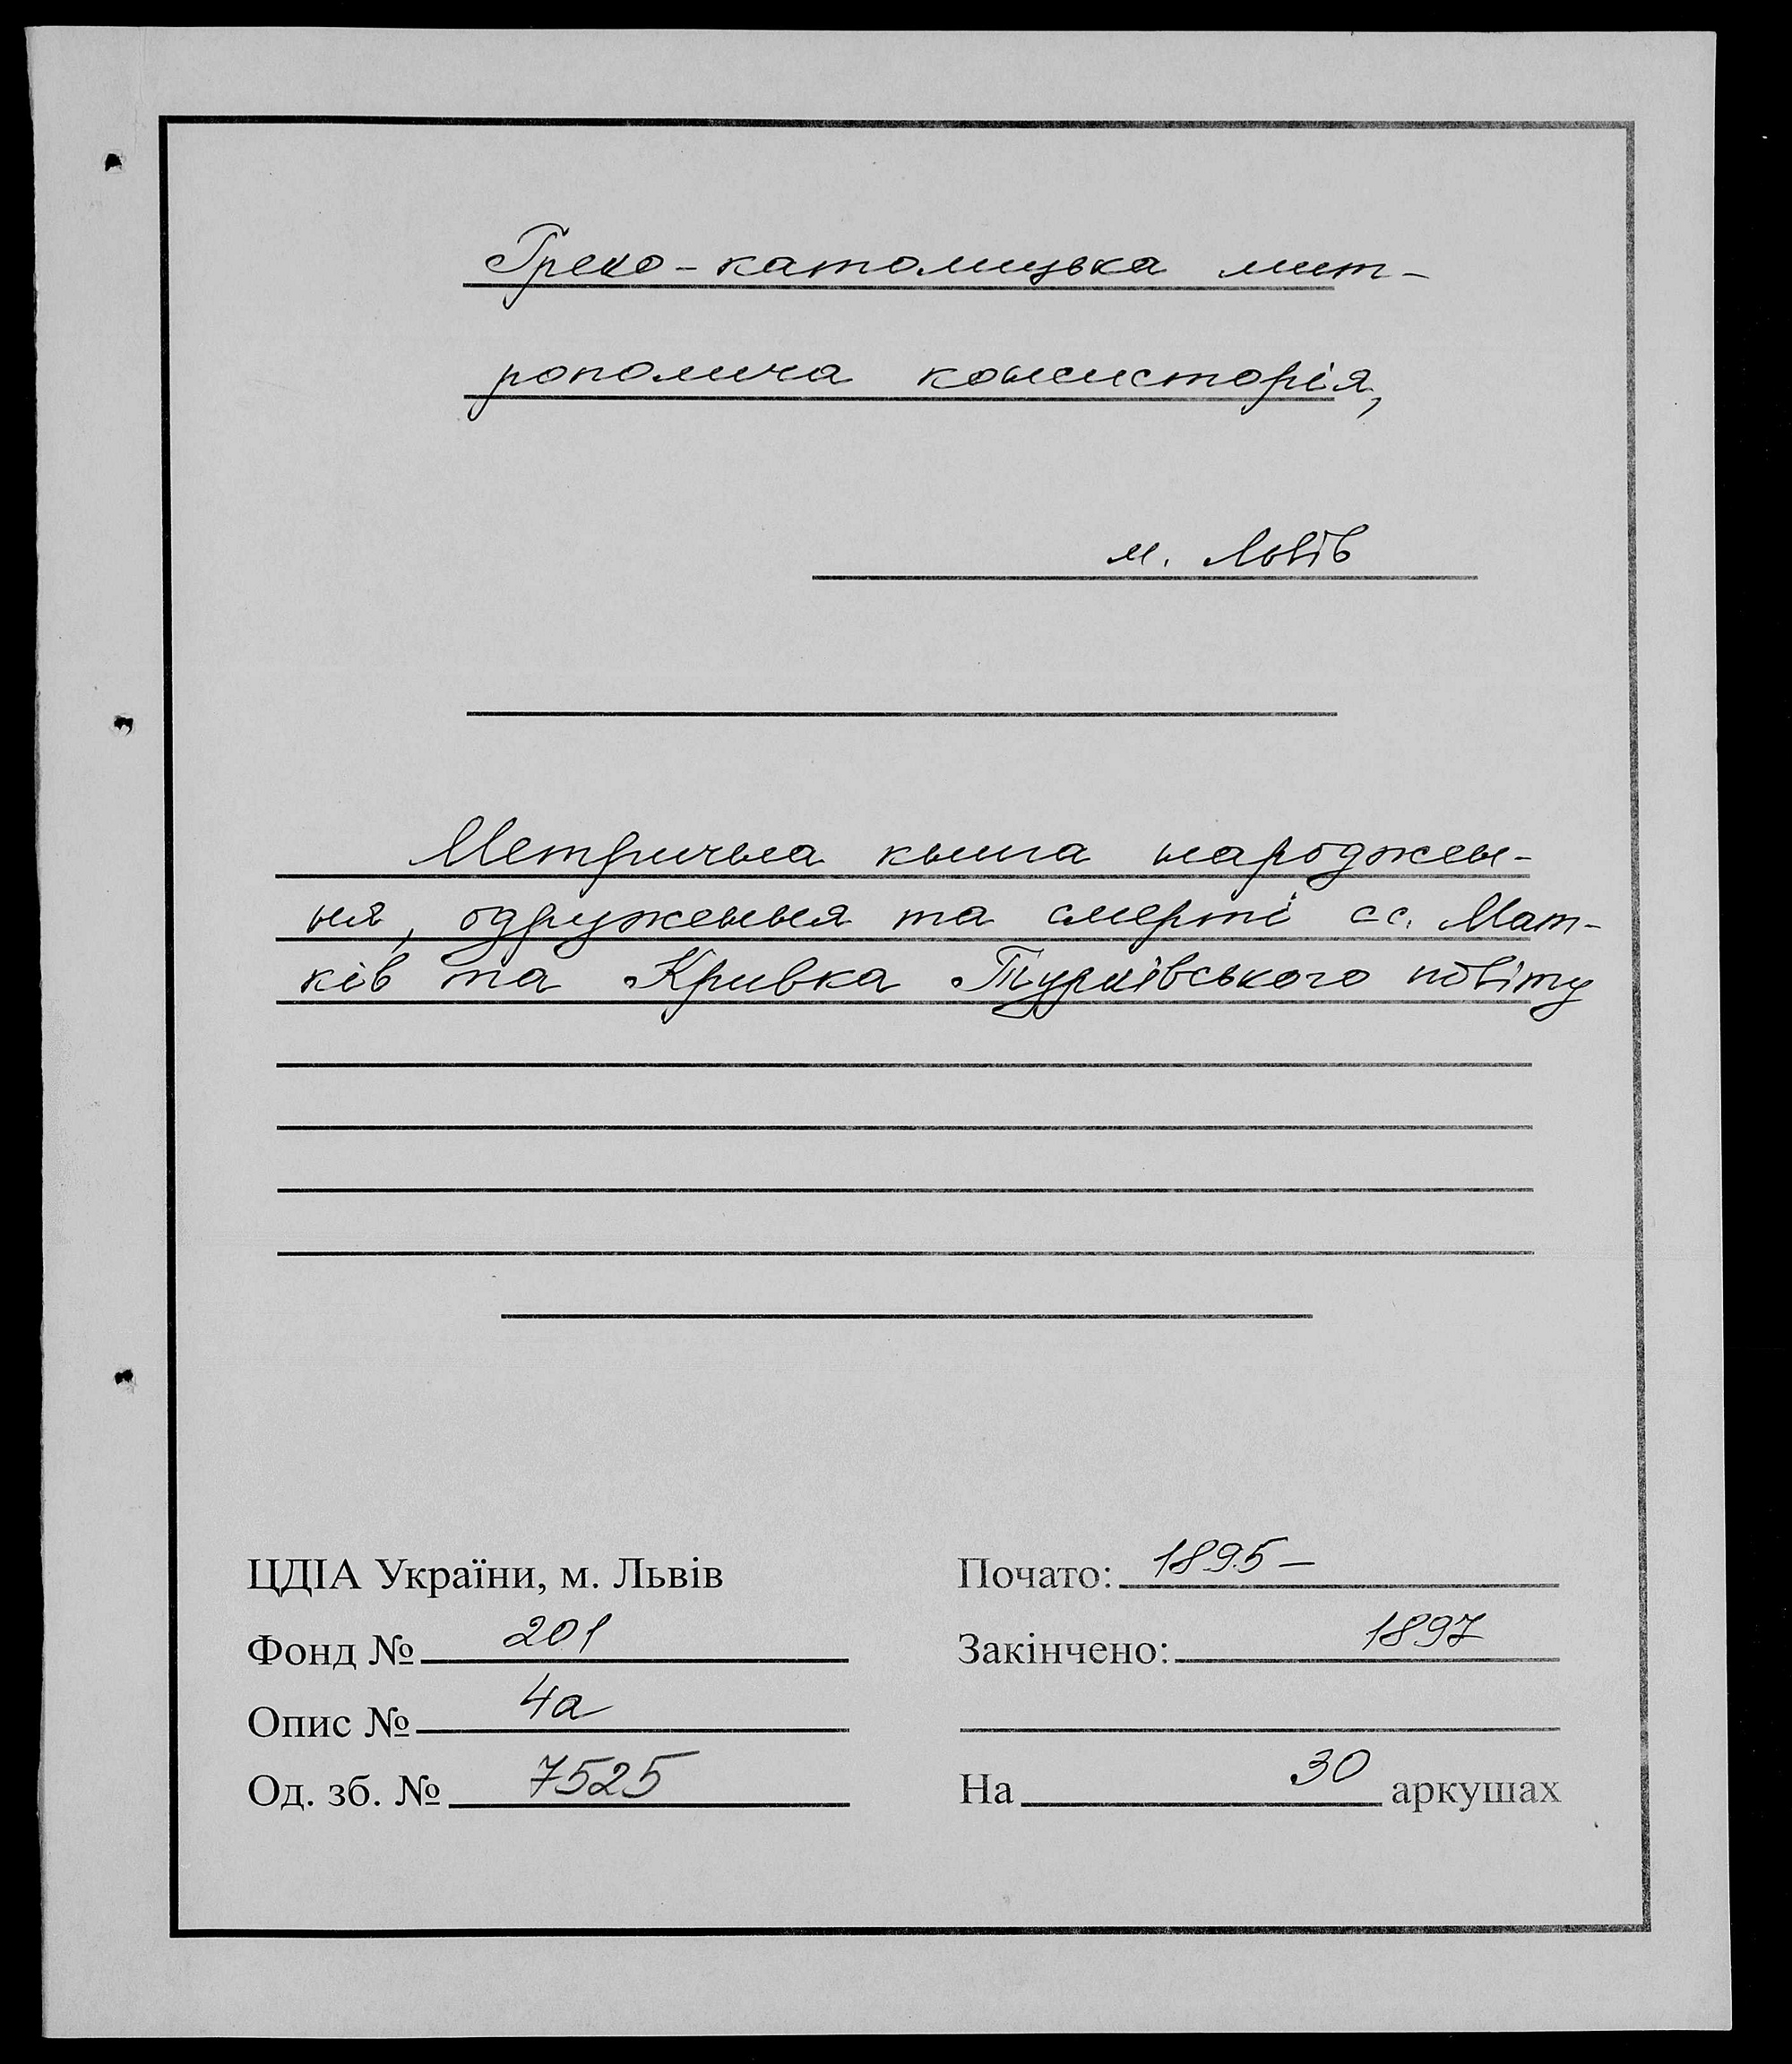 Греко-католицька мит-
рополича консисторія,
м. Львів
Метрична книга народжен-
ня, одруження та смерті сс. Мат-
ків та Кривка Турківського повіту
ЦДІА України, м. Львів
Фонд № 201
Опис № 4а
Од. зб. № 7525
Почато: 1895-
Закінчено: 1897
На 30 аркушах